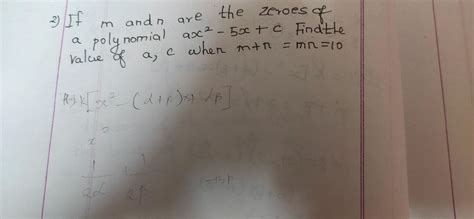 2) If m and n are the zeroes of
a polynomial ax² - 5x + c Find the
value of a, c when m+n = mn = 10
K[x² - (α+β)x + αβ]
x
1/2α + 1/2β